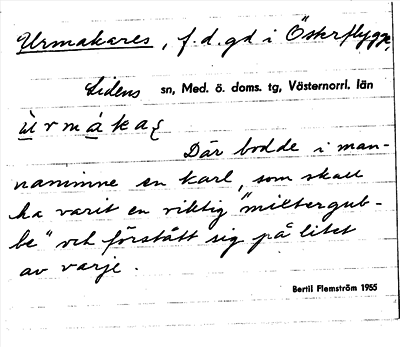 Urmakares, f.d. gd i Österflygge,
Lidens sn, Med. ö. doms. tg, Västernorrl. län
ùrmáka
Där bodde i man-
naminne en karl, som skall
ha varit en riktig "miltergub-
be" och förstått sig på litet
av varje.
Bertil Flemström 1955